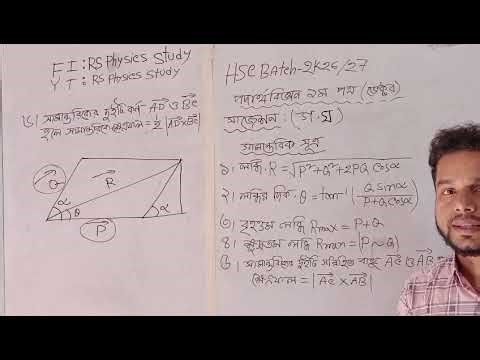 FI: RS Physics Study
YT: RS Physics Study
৬। সামান্তরিকের দুইটি কর্ণ AD ও BC
হলে সামান্তরিকের ক্ষেত্রফল = 1/2 |AD×BC|
Q
R
α
θ
α
P
HSC Batch-2K26/27
পদার্থবিজ্ঞান ১ম পত্র (ভেক্টর)
সাজেশন: (গ.ঘ)
সামান্তরিক সূত্র
১। লব্ধি, R = √P²+Q²+2PQ cosα
২। লব্ধির দিক, θ = tan⁻¹ (Q sinα / P+Q cosα)
৩। বৃহত্তম লব্ধি Rmax = P+Q
৪। ক্ষুদ্রতম লব্ধি Rmin = |P~Q|
৫। সামান্তরিকের দুইটি সন্নিহিত বাহু AC ও AB
ক্ষেত্রফল = |AC × AB|